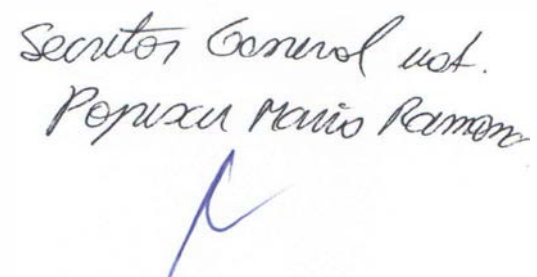 Secretar General uat.
Popescu Maria Ramona